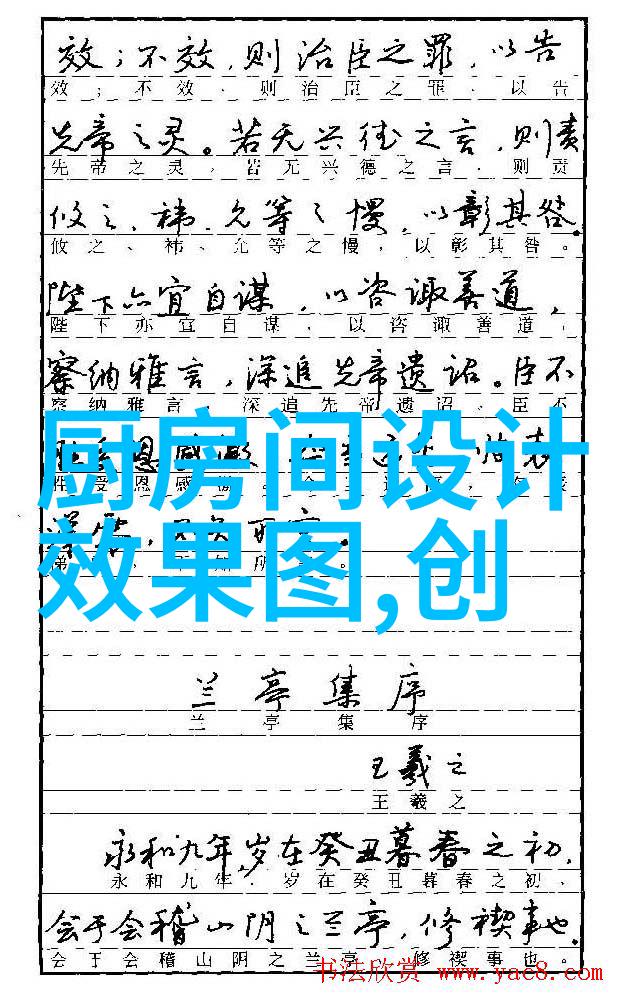 效；不效，则治臣之罪，以告
效；不效，则治臣之罪，以告
先帝之灵。若无兴德之言，则责
先帝之灵，若无兴德之言，则责
攸之、祎、允等之慢，以彰其咎。
攸之、祎、允等之慢，以彰其咎。
陛下亦宜自谋，以咨诹善道，
陛下亦宜自谋，以咨诹善道，
察纳雅言，深追先帝遗诏。臣不
察纳雅言，深追先帝遗诏，臣不
厨房间设计
效果图,创
兰亭集序
兰亭集序
王羲之
王羲之
永和九年，岁在癸丑暮春之初，
永和九年，岁在癸丑暮春之初，
会于会稽山阴之兰亭，修禊事也。
会于会稽山阴之兰亭，修禊事也。
书法欣赏 www.yac8.com